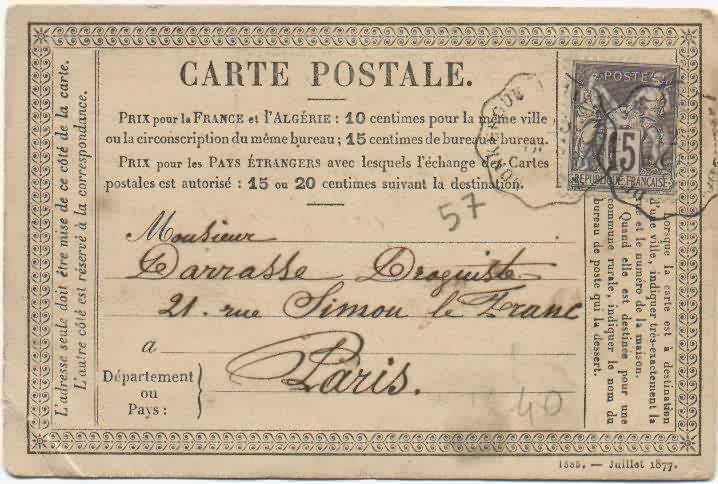 CARTE POSTALE.
PRIX pour la FRANCE et l'ALGÉRIE : 10 centimes pour la même ville
ou la circonscription du même bureau ; 15 centimes de bureau à bureau.
PRIX pour les PAYS ÉTRANGERS avec lesquels l'échange des Cartes
postales est autorisé : 15 ou 20 centimes suivant la destination.
L'adresse seule doit être mise de ce côté de la carte.
L'autre côté est réservé à la correspondance.
POSTE
15
REPUBLIQUE FRANCAISE
57
Monsieur
Darrasse Droguiste
21. rue Simon le Franc
a
Paris.
Département
ou
Pays :
40
Lorsque la carte est à destination
d'une ville, indiquer très-exactement la
rue et le numéro de la maison.
Quand elle est destinée pour une
commune rurale, indiquer le nom du
bureau de poste qui la dessert.
1885. — Juillet 1877.